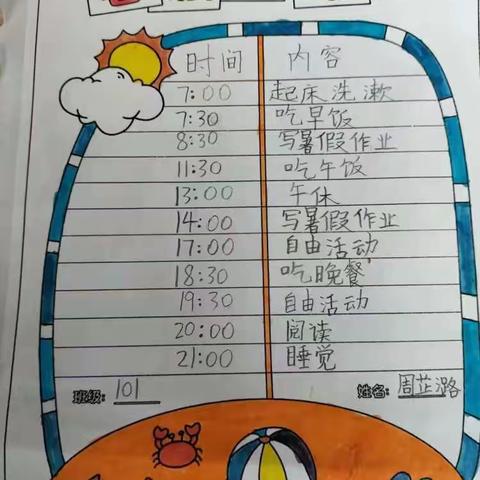 时间 内容
7:00 起床洗漱
7:30 吃早饭
8:30 写暑假作业
11:30 吃午饭
13:00 午休
14:00 写暑假作业
17:00 自由活动
18:30 吃晚餐
19:30 自由活动
20:00 阅读
21:00 睡觉
班级: 101 姓名: 周芷潞